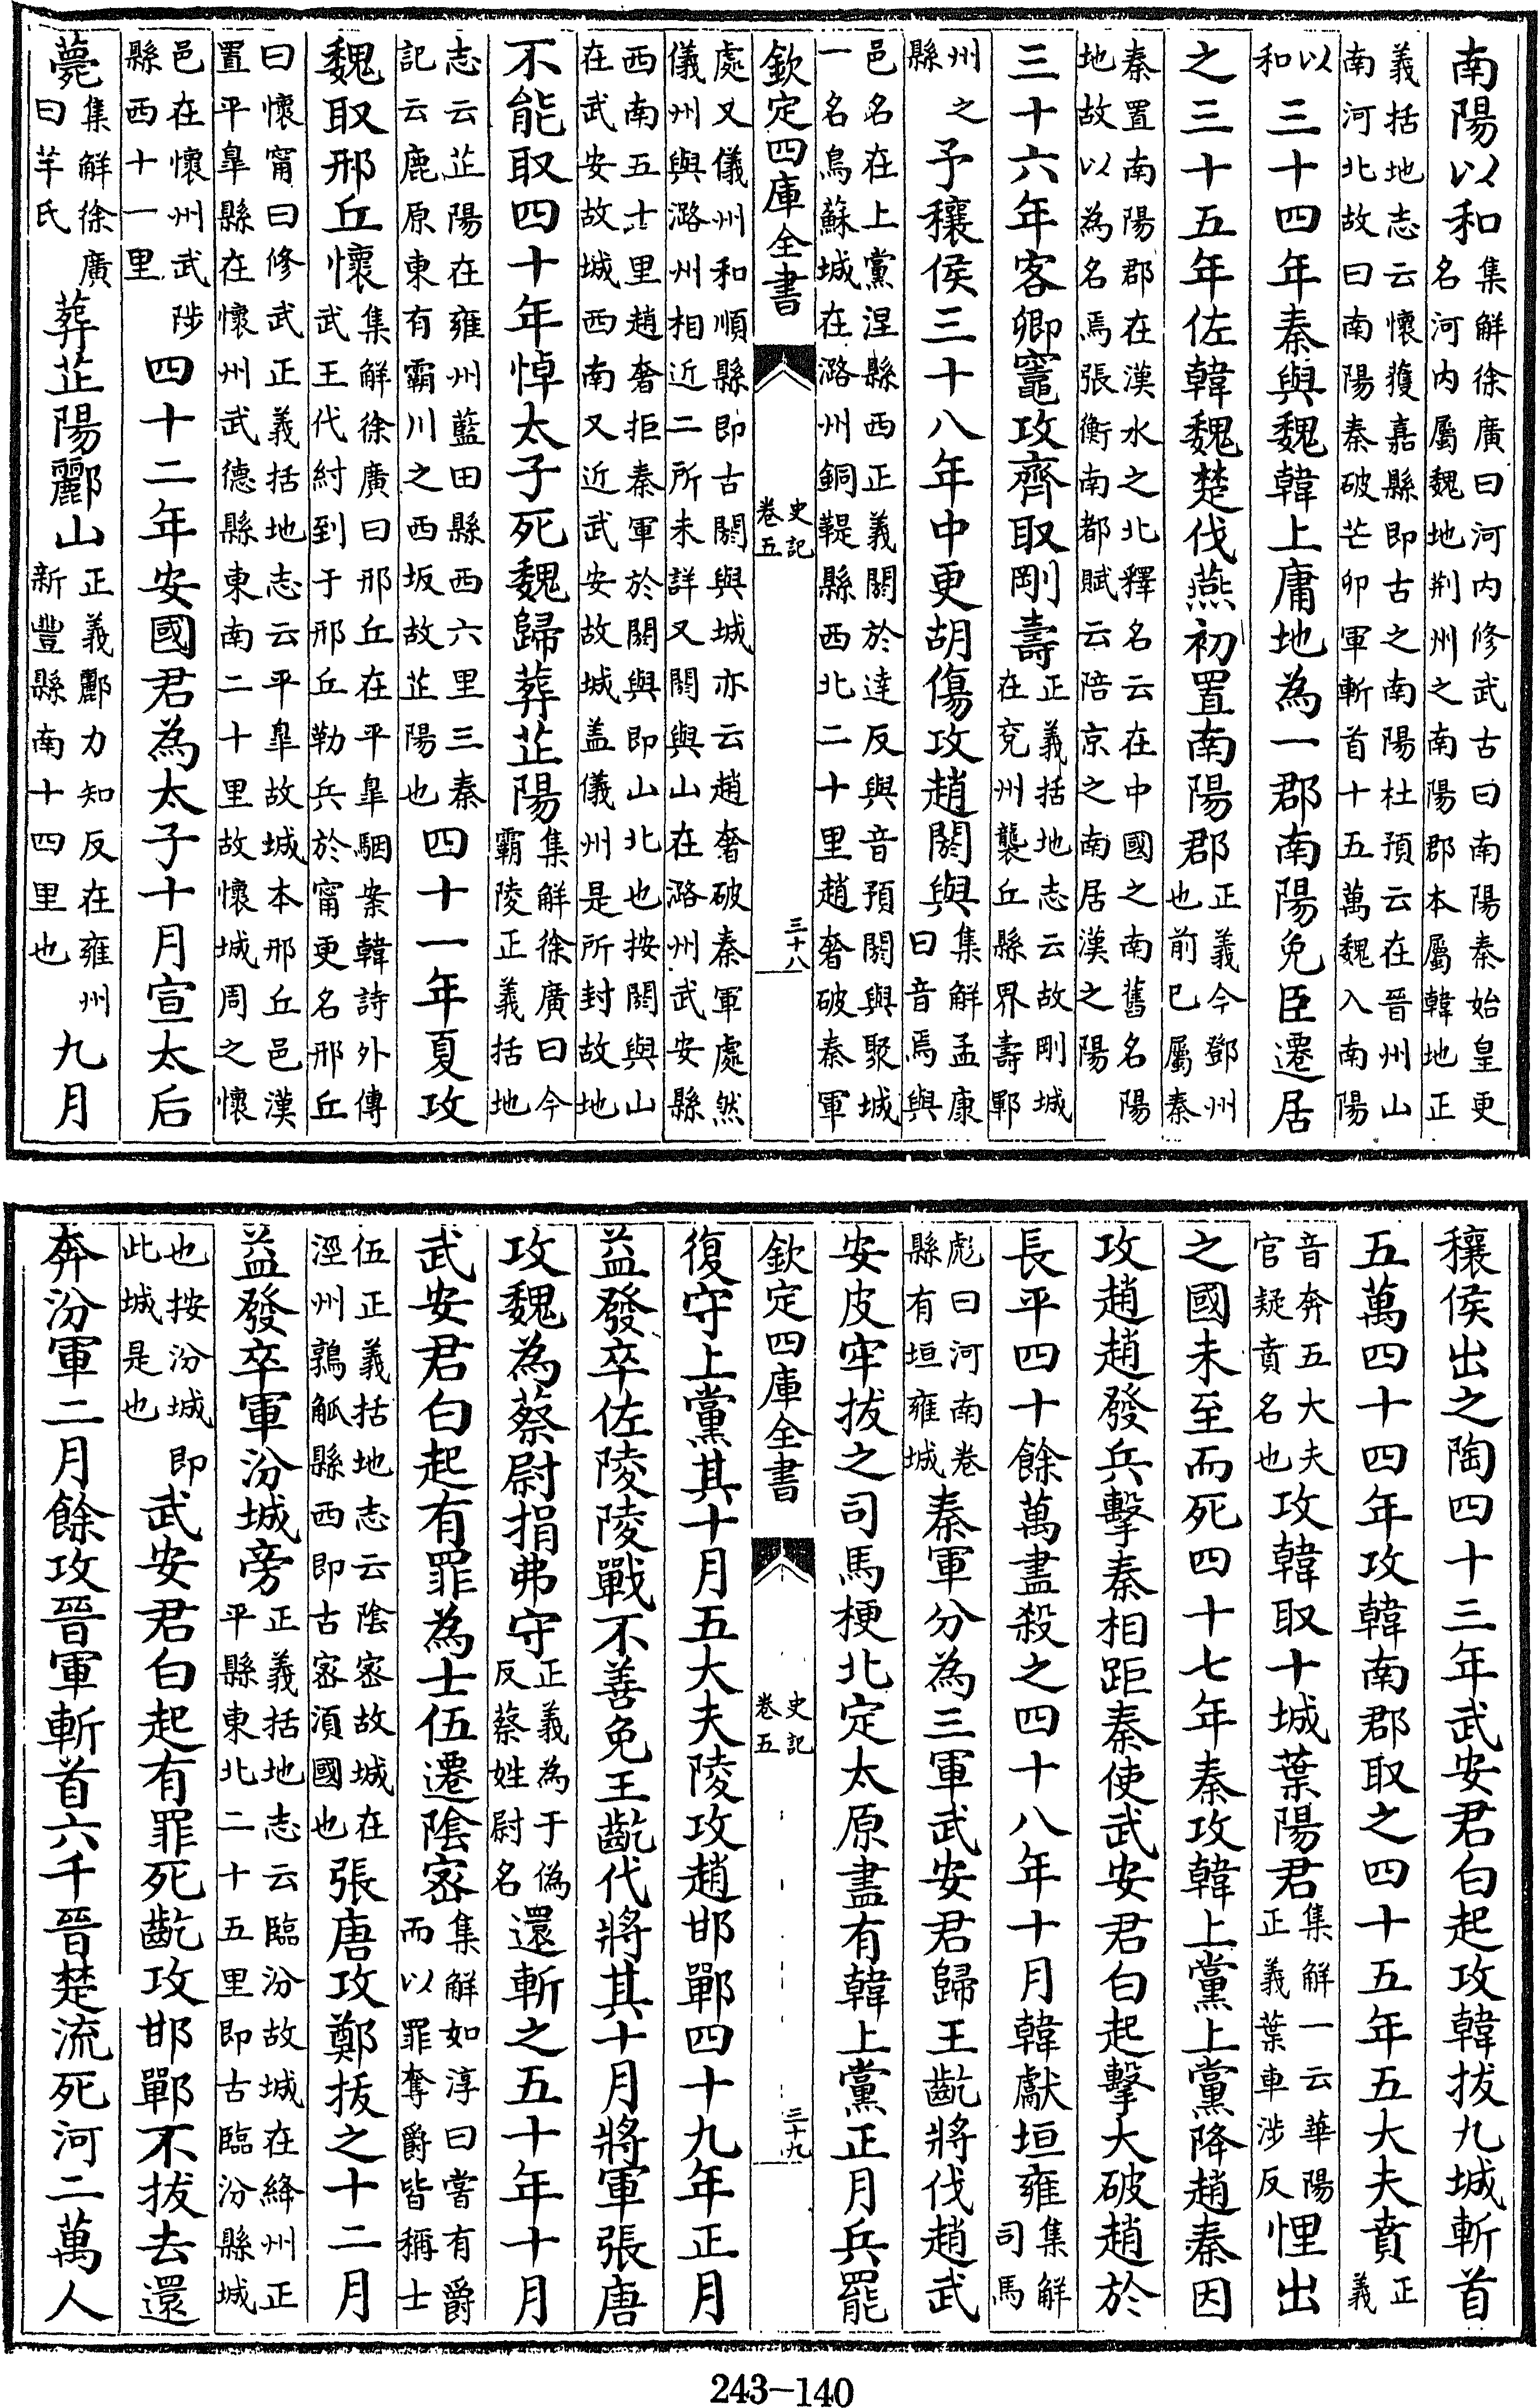 南陽以和集解徐廣曰河内修武古曰南陽秦始皇更名河内屬魏地荆州之南陽郡本屬韓地正
義括地志云懷獲嘉縣即古之南陽杜預云在晉州山南河北故曰南陽秦破芒卯軍斬首十五萬魏入南陽
以和三十四年秦與魏韓上庸地為一郡南陽免臣遷居
之三十五年佐韓魏楚伐燕初置南陽郡正義今鄧州也前已屬秦
秦置南陽郡在漢水之北釋名云在中國之南舊名陽地故以為名焉張衡南都賦云陪京之南居漢之陽
三十六年客卿竈攻齊取剛壽正義括地志云故剛城在兖州襲丘縣界壽鄆
州之縣予穰侯三十八年中更胡傷攻趙閼與集解孟康曰音焉與
邑名在上黨涅縣西正義閼於逹反與音預閼與聚城一名烏蘇城在潞州銅鞮縣西北二十里趙奢破秦軍
欽定四庫全書 史記卷五 三十八
處又儀州和順縣即古閼與城亦云趙奢破秦軍處然儀州與潞州相近二所未詳又閼與山在潞州武安縣
西南五十里趙奢拒秦軍於閼與即山北也按閼與山在武安故城西南又近武安故城盖儀州是所封故地
不能取四十年悼太子死魏歸葬芷陽集解徐廣曰今霸陵正義括地
志云芷陽在雍州藍田縣西六里三秦記云鹿原東有霸川之西坂故芷陽也四十一年夏攻
魏取邢丘懷集解徐廣曰邢丘在平臯駰案韓詩外傳武王代紂到于邢丘勒兵於甯更名邢丘
曰懷甯曰修武正義括地志云平臯故城本邢丘邑漢置平臯縣在懷州武德縣東南二十里故懷城周之懷
邑在懷州武陟縣西十一里四十二年安國君為太子十月宣太后
薨集解徐廣曰芊氏葬芷陽酈山正義酈力知反在雍州新豐縣南十四里也九月
穰侯出之陶四十三年武安君白起攻韓拔九城斬首
五萬四十四年攻韓南郡取之四十五年五大夫賁正義
音奔五大夫官疑賁名也攻韓取十城葉陽君集解一云華陽正義葉車涉反悝出
之國未至而死四十七年秦攻韓上黨上黨降趙秦因
攻趙趙發兵擊秦相距秦使武安君白起擊大破趙於
長平四十餘萬盡殺之四十八年十月韓獻垣雍集解司馬
彪曰河南卷縣有垣雍城秦軍分為三軍武安君歸王齕將伐趙武
安皮牢拔之司馬梗北定太原盡有韓上黨正月兵罷
欽定四庫全書 史記卷五 三十九
復守上黨其十月五大夫陵攻趙邯鄲四十九年正月
益發卒佐陵陵戰不善免王齕代將其十月將軍張唐
攻魏為蔡尉捐弗守正義為于偽反蔡姓尉名還斬之五十年十月
武安君白起有罪為士伍遷陰宻集解如淳曰嘗有爵而以罪奪爵皆稱士
伍正義括地志云陰宻故城在涇州鶉觚縣西即古宻湏國也張唐攻鄭拔之十二月
益發卒軍汾城旁正義括地志云臨汾故城在絳州正平縣東北二十五里即古臨汾縣城
也按汾城即此城是也武安君白起有罪死齕攻邯鄲不拔去還
奔汾軍二月餘攻晉軍斬首六千晉楚流死河二萬人
243-140